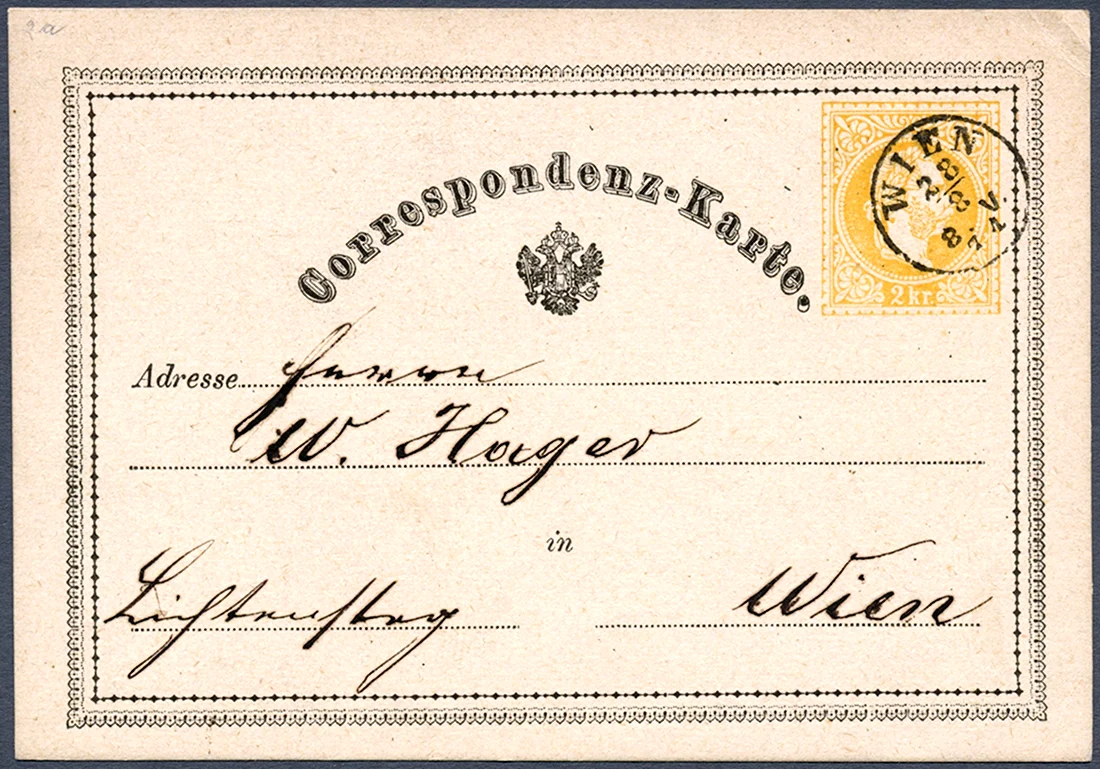 2a
WIEN
28/8
2 kr.
Correspondenz-Karte.
Adresse Herrn
W. Hager
in
Lichtensteg Wien